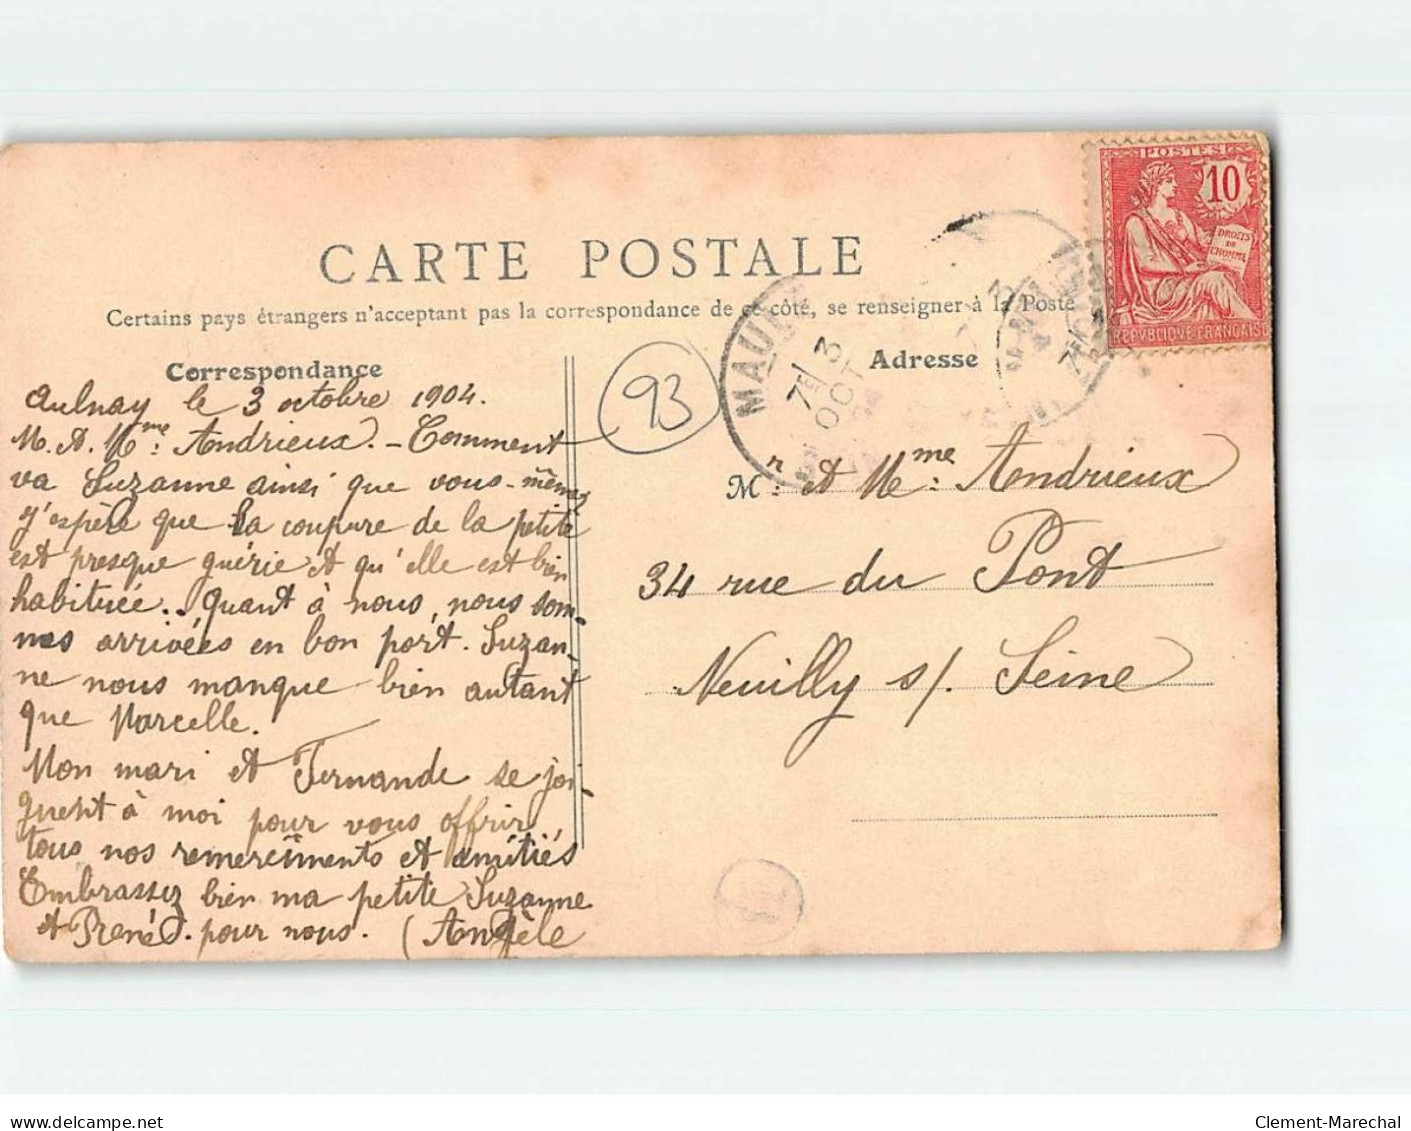 POSTES
10
DROITS
DE
L'HOMME
REPVBLIQVE FRANÇAISE
CARTE POSTALE
Certains pays étrangers n'acceptent pas la correspondance de ce côté, se renseigner à la Poste
Correspondance
Adresse
93
MAU
7E 3
OCT
Aulnay le 3 octobre 1904.
M. et Mme: Andrieux. - Comment
va Suzanne ainsi que vous-mêmes
j'espère que la coupure de la petite
est presque guérie et qu'elle est bien
habituée.. Quant à nous, nous som-
mes arrivées en bon port. Suzan-
ne nous manque bien autant
que Marcelle.
Mon mari et Fernande se joi-
gnent à moi pour vous offrir
tous nos remercîments et amitiés
Embrassez bien ma petite Suzanne
et René. pour nous. (Angèle
Mr: et Mme: Andrieux
34 rue du Pont
Neuilly s/. Seine
Clement-Marechal
www.delcampe.net